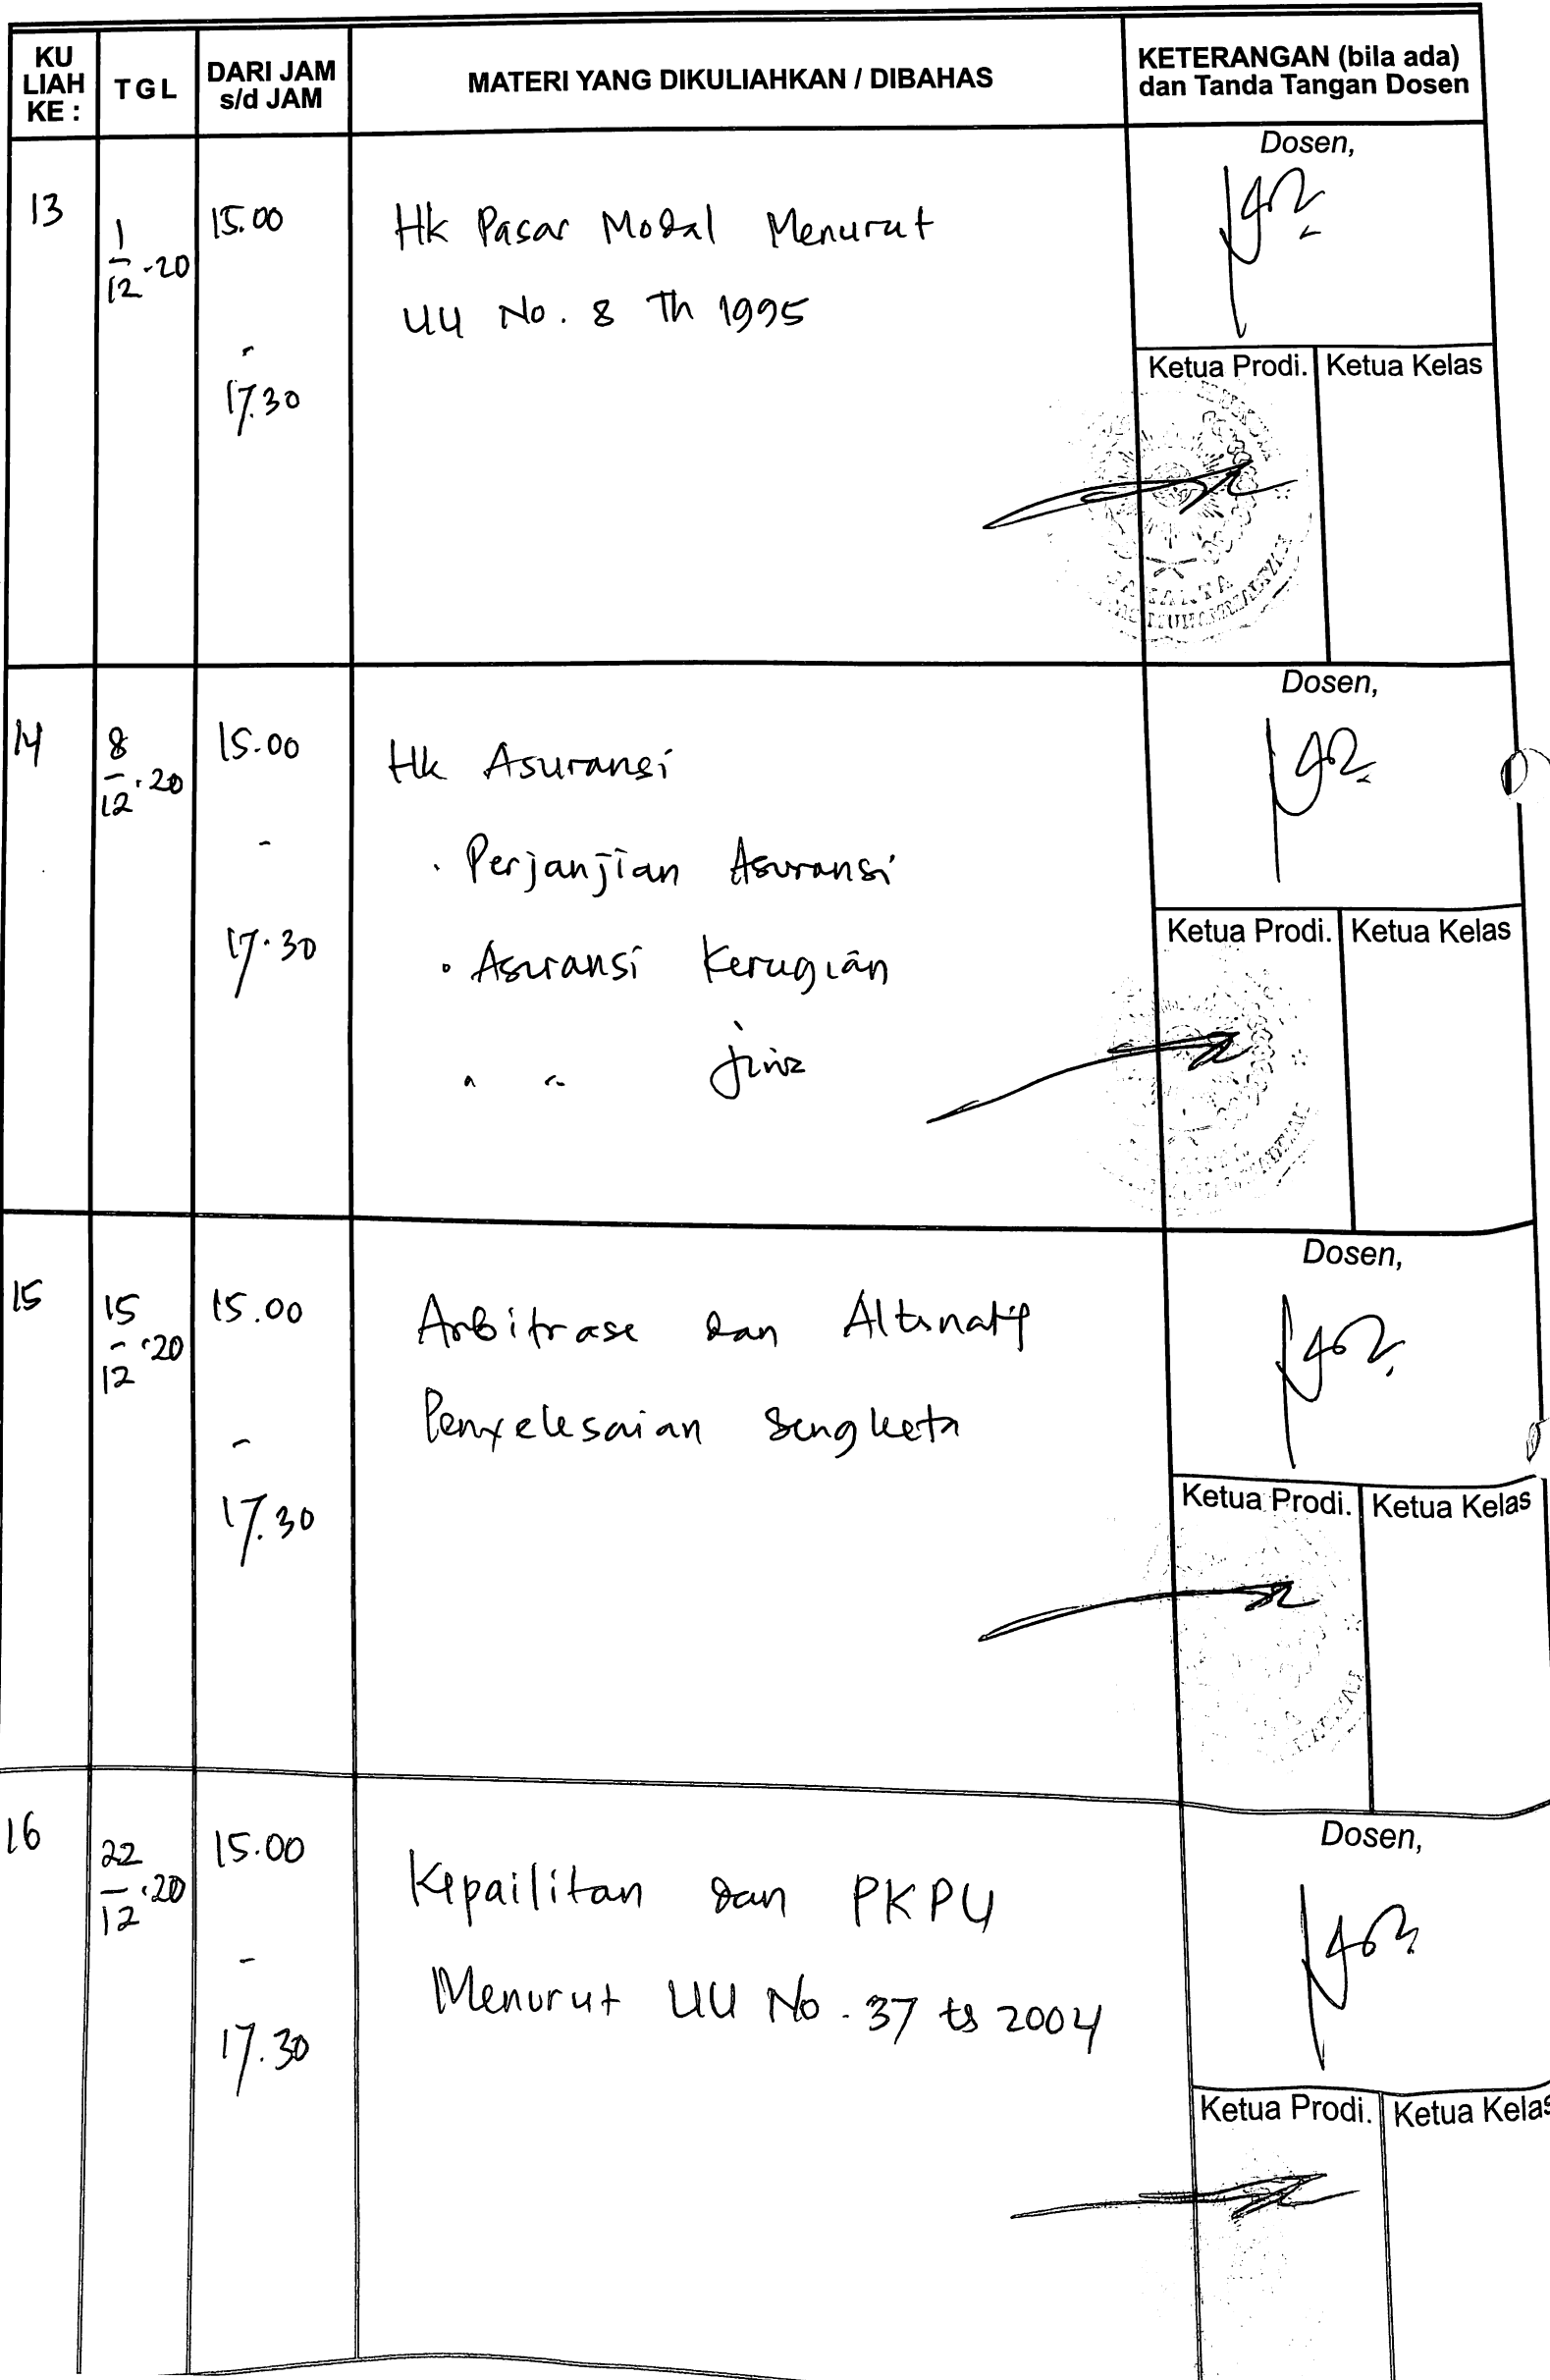 KU LIAH KE :
TGL
DARI JAM s/d JAM
MATERI YANG DIKULIAHKAN / DIBAHAS
KETERANGAN (bila ada) dan Tanda Tangan Dosen
13
1/12-20
15.00
-
17.30
Hk Pasar Modal Menurut
UU No. 8 Th 1995
Dosen,
Ketua Prodi.
Ketua Kelas
14
8/12.20
15.00
-
17.30
Hk Asuransi
. Perjanjian Asuransi
. Asuransi Kerugian
" " jiwa
Dosen,
Ketua Prodi.
Ketua Kelas
15
15/12.20
15.00
-
17.30
Arbitrase dan Altsnatif
Penyelesaian Sengketa
Dosen,
Ketua Prodi.
Ketua Kelas
16
22/12.20
15.00
-
17.30
Kepailitan dan PKPU
Menurut UU No. 37 th 2004
Dosen,
Ketua Prodi.
Ketua Kelas